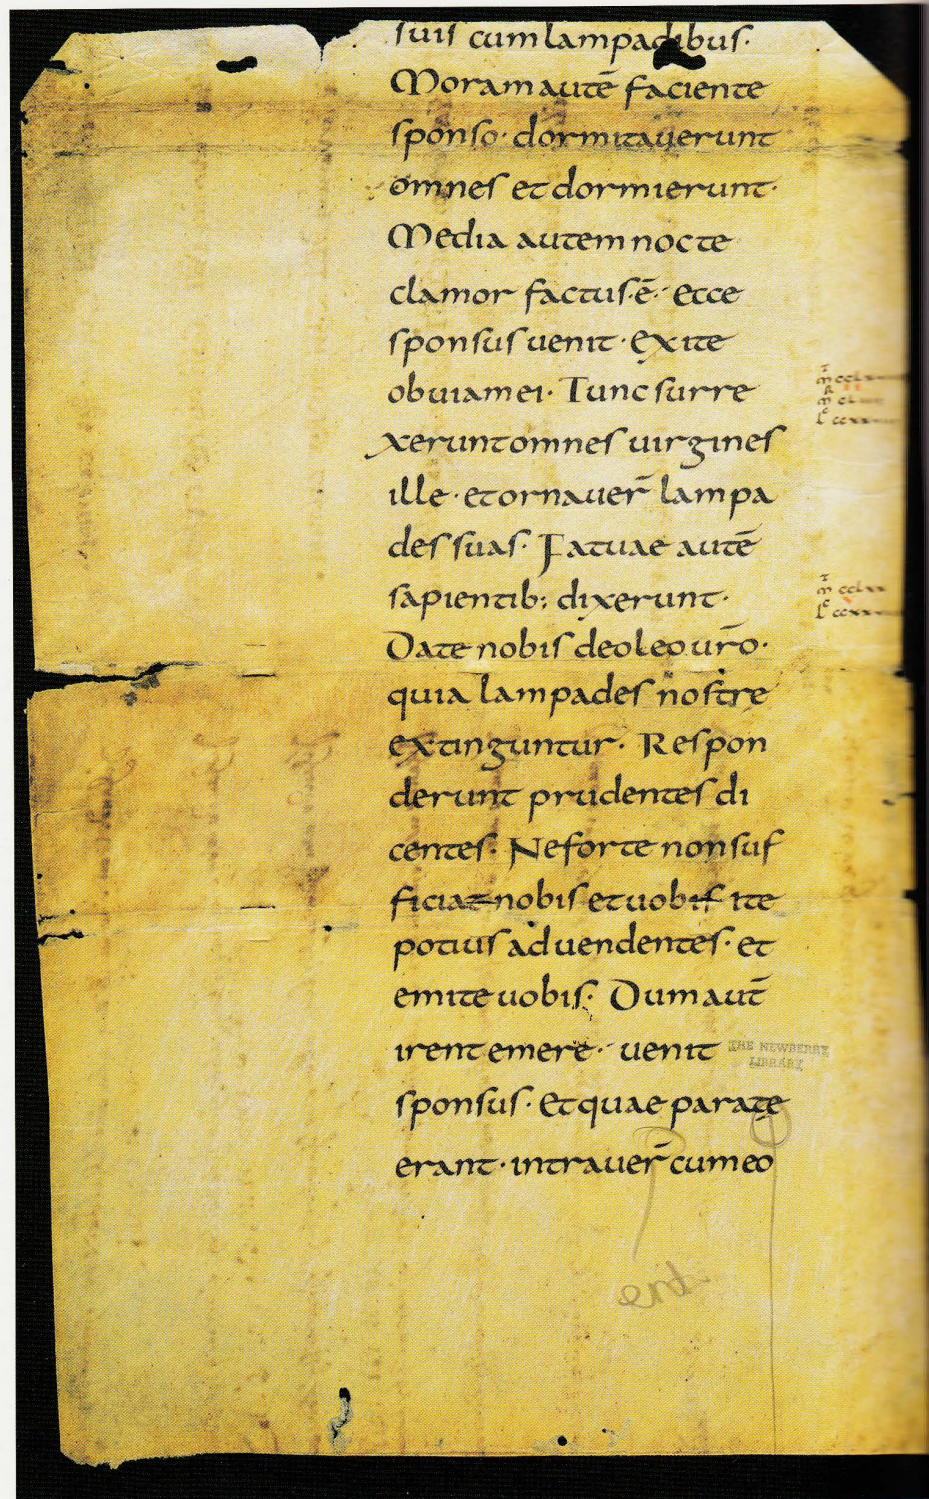 suis cum lampadibus·
Moram autē faciente
sponso· dormitauerunt
omnes et dormierunt·
Media autem nocte
clamor factus·ē·· Ecce
sponsus uenit· Exite
obuiam ei· Tunc surre
xerunt omnes uirgines
ille· et ornauer̄ lampa
des suas· Fatuae autē
sapientib: dixerunt·
Date nobis de oleo ur̄o·
quia lampades nostre
extinguntur· Respon
derunt prudentes di
centes· Ne forte non suf
ficiat nobis et uobis ite
potius ad uendentes· et
emite uobis· Dum aut̄
irent emere·· uenit
sponsus· Et quae parate
erant· intrauer̄ cum eo
THE NEWBERRY
LIBRARY